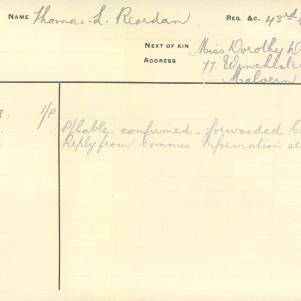 NAME Thomas L. Reordan REG. &C. 43rd
NEXT OF KIN Miss Dorothy
ADDRESS 77 Winchester
Malvern
1/P P/Cable confirmed - forwarded
Reply from Commis Information